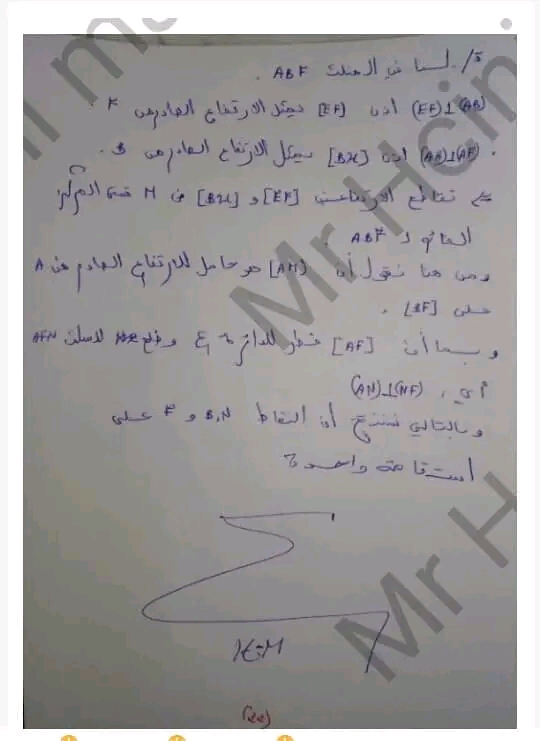 ة/ لنا في المثلث ABF .
(EF)⊥(AB) اذن [EF] يمثل الارتفاع الصادر من F .
(AH)⊥(AF) اذن [BH] يمثل الارتفاع الصادر من B .
تقاطع الارتفاعين [EF] و [BH] في M هي المركز
القائم لـ ABF .
ومن هنا نقول أن (AM] هو حامل للارتفاع الصادر من A
على [BF] .
و بما أن [AF] قطر للدائرة وضلع للمثلث AFN
أي (AN)⊥(NF)
وبالتالي نستنتج أن النقاط B,N و F على
استقامة واحدة
H:M
(22)
Mr Hcin
Mr H